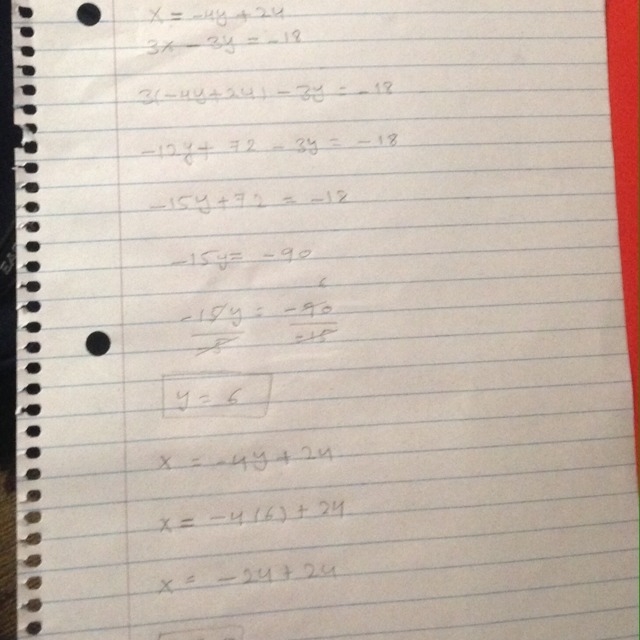 x = -4y + 24
3x - 3y = -18
3(-4y+24) - 3y = -18
-12y + 72 - 3y = -18
-15y + 72 = -18
-15y = -90
6
-15y = -90
-15
y = 6
x = -4y + 24
x = -4(6) + 24
x = -24 + 24